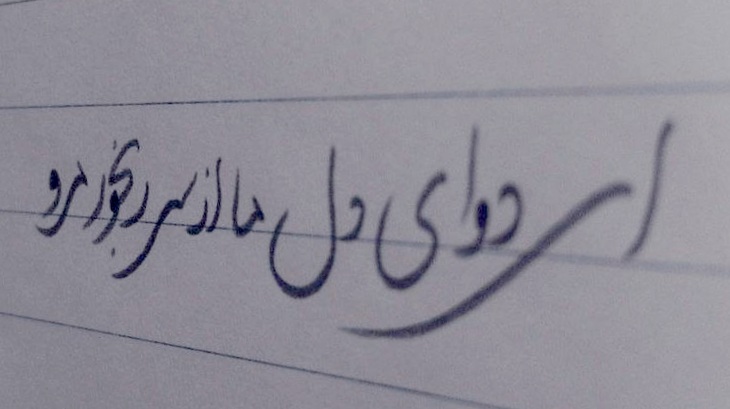 ای دوای دل ما از سر رنجور مرو